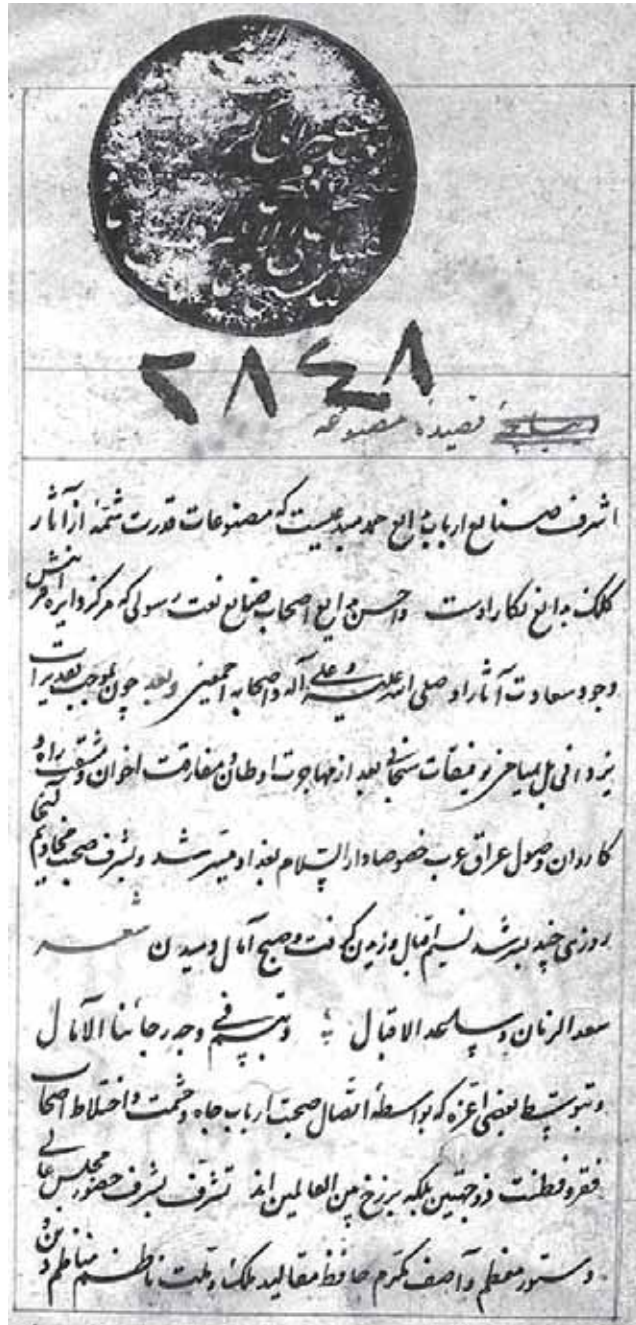 ۲۸۴۸
دیباچهٔ قصیدهٔ مصنوعه
اشرف صنایع ارباب بدایع حمد مبدعیست که مصنوعات قدرت شمهٔ از آثار
کلک بدایع نگار اوست واحسن بدایع اصحاب صنایع نعت رسولی که مرکز دایره آفرینش
وجود سعادت آثار او صلی الله علیه وعلی آله واصحابه اجمعین وبعد چون بموجب تقدیرات
یزدانی بل بمیامن توفیقات سبحانی بعد از مهاجرت اوطان ومفارقت اخوان براه و
کاروان وصول عراق عرب خصوصا دار السلام بغداد میسر شد وبشرف صحبت مخادیم آنجا
روزی چند بسر شد نسیم اقبال وزیدن گرفت وصبح آمال دمیدن شعر
سعد الزمان وساعد الاقبال وتبسم فی وجه رجائنا الآمال
وبتوسط بعضی اعزه که بواسطهٔ اتصال صحبت ارباب جاه وحشمت واختلاط اصحاب
فقر وفطنت ذو جهتین بلکه برزخ بین العالمین اند تشرف بشرف حضور مجلس عالی
دستور معظم وآصف مکرم حافظ مقالید ملک وملت ناظم مناظم دین و